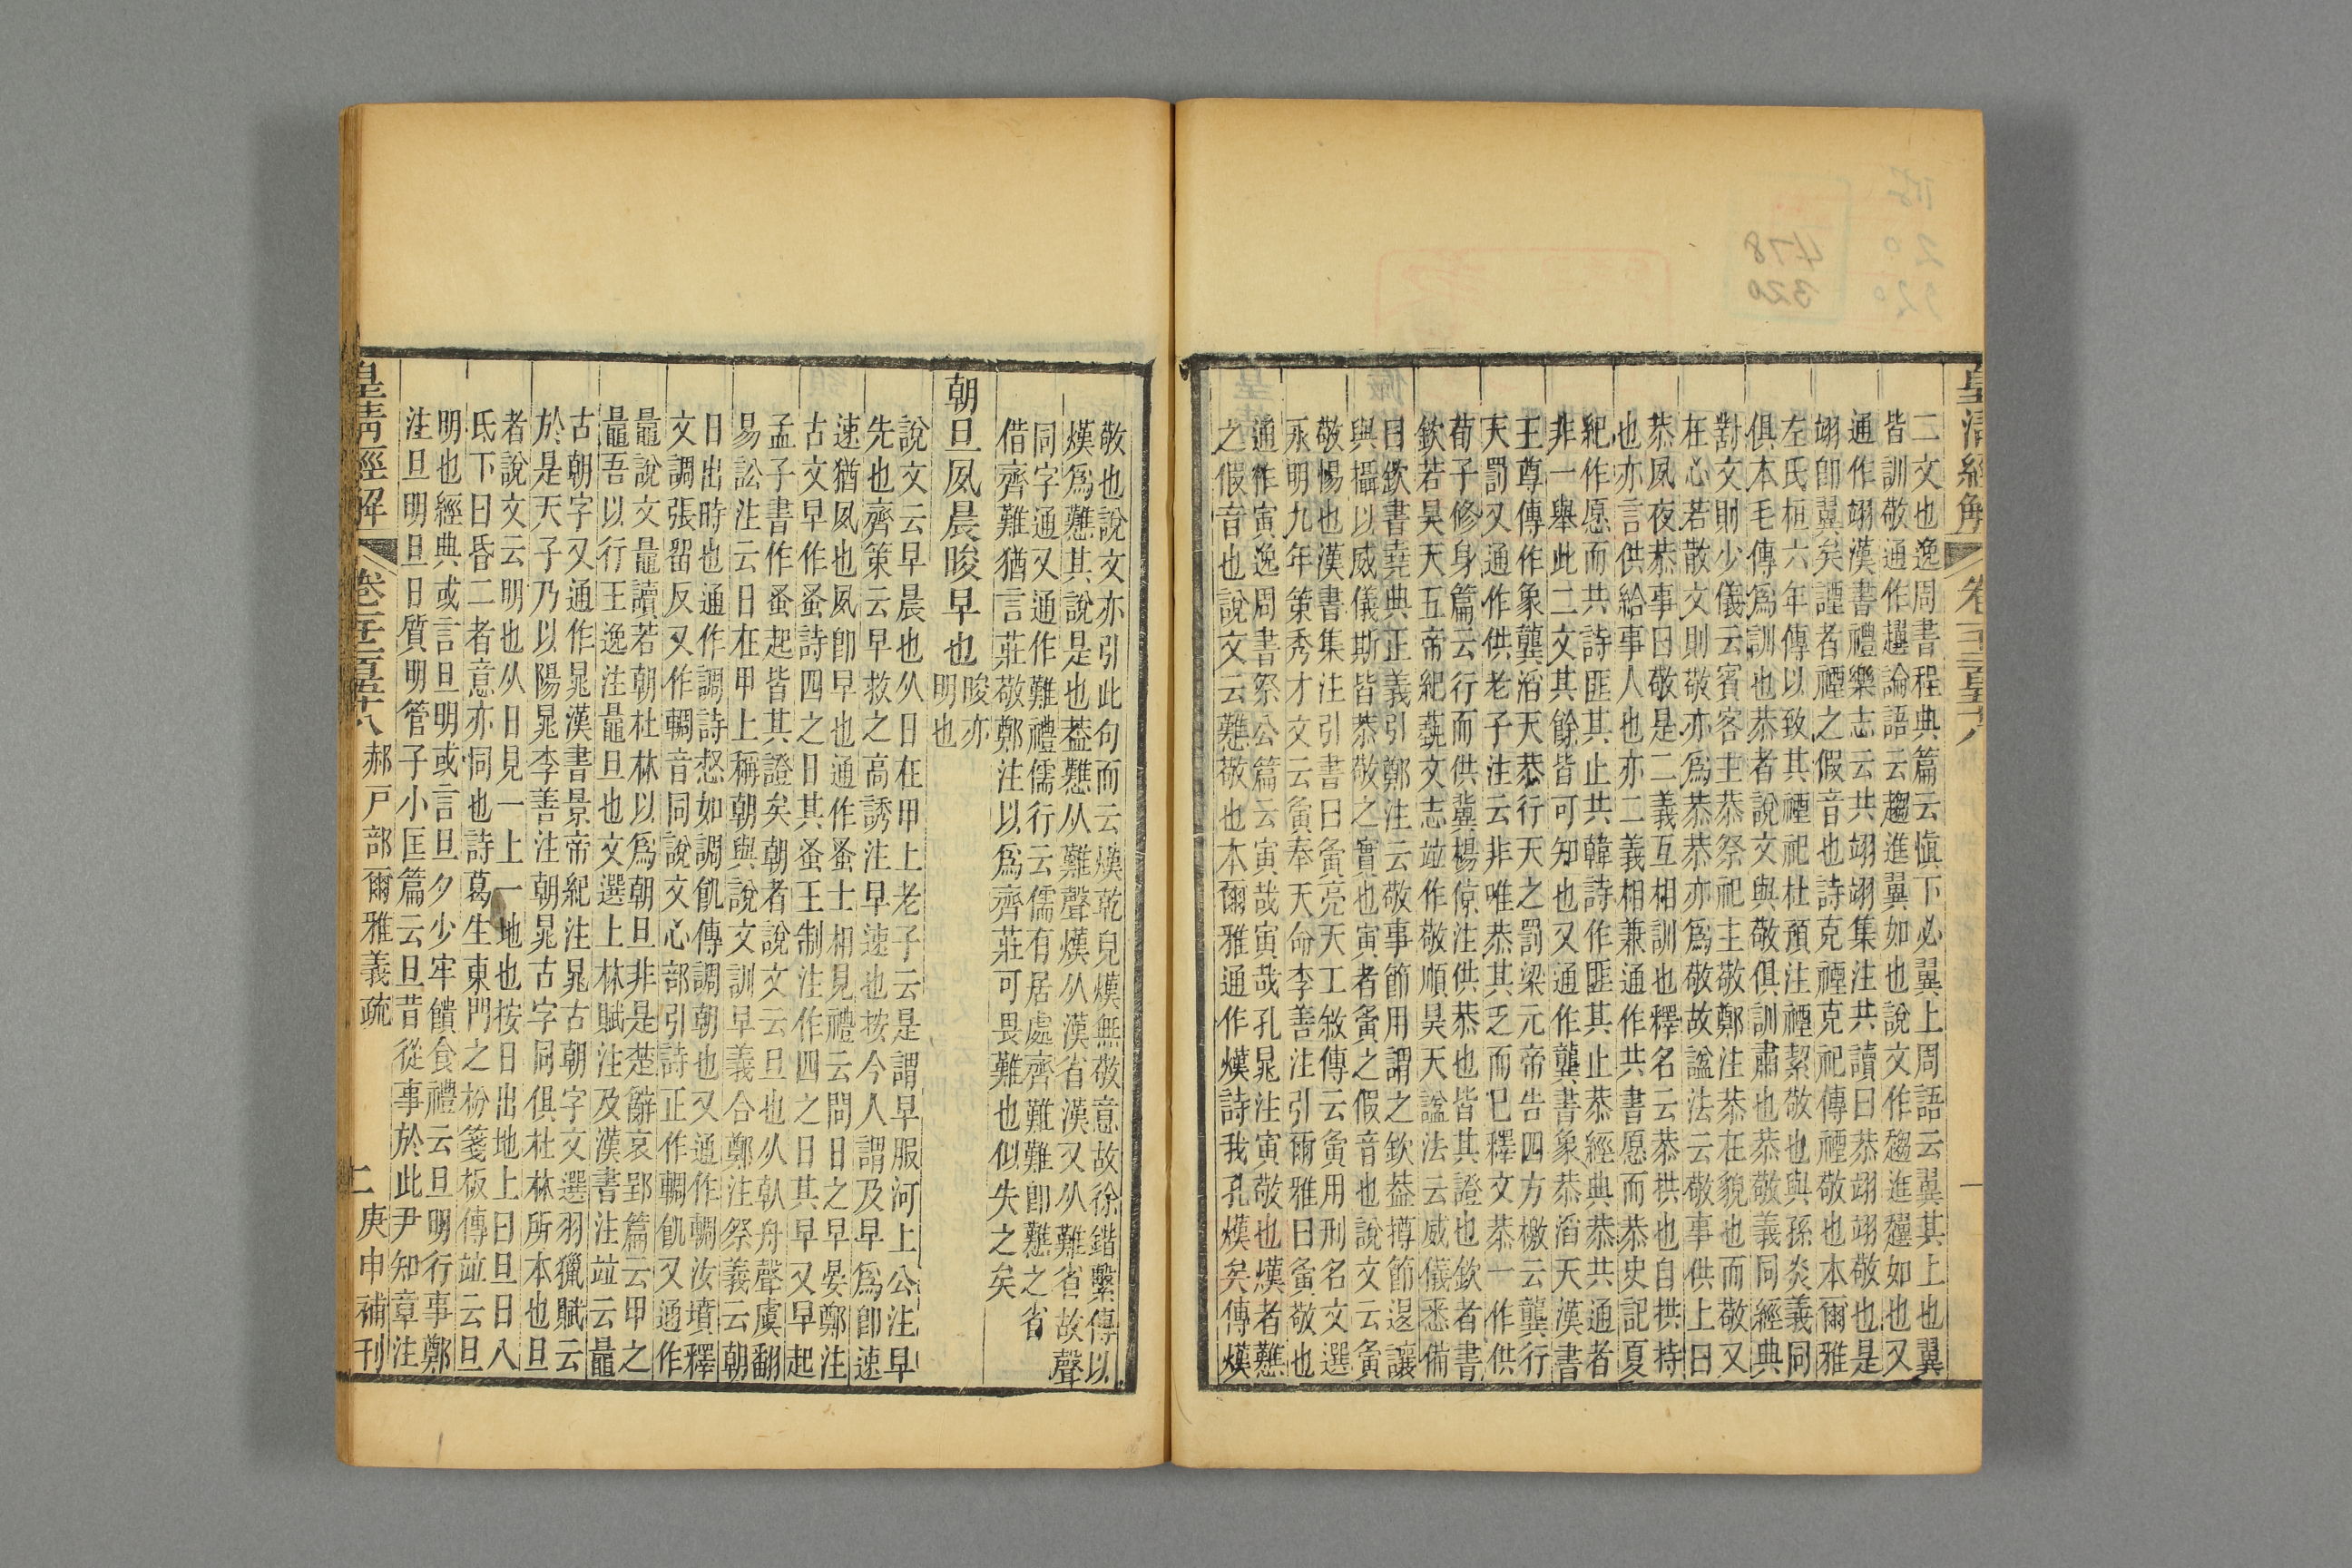 皇清經解
卷千二百五十八
二文也逸周書程典篇云愼下必翼上周語云翼其上也翼
皆訓敬通作趩論語云趨進翼如也說文作趨進趩如也又
通作翊漢書禮樂志云共翊翊集注共讀曰恭翊翊敬也是
翊卽翼矣諲者禋之假音也詩克禋克祀傳禋敬也本爾雅
左氏桓六年傳以致其禋祀杜預注禋絜敬也與孫炎義同
俱本毛傳爲訓也恭者說文與敬俱訓肅也恭敬義同經典
對文則少儀云賓客主恭祭祀主敬鄭注恭在貌也而敬又
在心若散文則敬亦爲恭恭亦爲敬故諡法云敬事供上曰
恭夙夜恭事曰敬是二義互相訓也釋名云恭拱也自拱持
也亦言供給事人也亦二義相兼通作共書愿而恭史記夏
紀作愿而共詩匪其止共韓詩作匪其止恭經典恭共通者
非一舉此二文其餘皆可知也又通作龔書象恭滔天漢書
王尊傳作象龔滔天恭行天之罰梁元帝告四方檄云龔行
天罰又通作供老子注云非唯恭其乏而已釋文恭一作供
荀子修身篇云行而供冀楊倞注供恭也皆其證也欽者書
欽若昊天五帝紀蓺文志竝作敬順昊天諡法云威儀悉備
曰欽書堯典正義引鄭注云敬事節用謂之欽葢撙節退讓
與攝以威儀斯皆恭敬之實也寅者夤之假音也說文云夤
敬惕也漢書集注引書曰夤亮天工敘傳云夤用刑名文選
永明九年策秀才文云夤奉天命李善注引爾雅曰夤敬也
通作寅逸周書祭公篇云寅哉寅哉孔晁注寅敬也熯者戁
之假音也說文云戁敬也本爾雅通作熯詩我孔熯矣傳熯
敬也說文亦引此句而云熯乾皃熯無敬意故徐鍇繫傳以
熯爲戁其說是也葢戁从難聲熯从漢省漢又从難省故聲
同字通又通作難禮儒行云儒有居處齊難難卽戁之省
借齊難猶言莊敬鄭注以爲齊莊可畏難也似失之矣
朝旦夙晨晙早也晙亦明也
說文云早晨也从日在甲上老子云是謂早服河上公注早
先也齊策云早救之高誘注早速也按今人謂及早爲卽速
速猶夙也夙卽早也通作蚤士相見禮云問日之早晏鄭注
古文早作蚤詩四之日其蚤王制注作四之日其早又早起
孟子書作蚤起皆其證矣朝者說文云旦也从倝舟聲虞翻
易訟注云日在甲上稱朝與說文訓早義合鄭注祭義云朝
日出時也通作調詩惄如調飢傳調朝也又通作輖汝墳釋
文調張畱反又作輖音同說文心部引詩正作輖飢又通作
鼂說文鼂讀若朝杜林以爲朝旦非是楚辭哀郢篇云甲之
鼂吾以行王逸注鼂旦也文選上林賦注及漢書注竝云鼂
古朝字又通作晁漢書景帝紀注晁古朝字文選羽獵賦云
於是天子乃以陽晁李善注朝晁古字同俱杜林所本也旦
者說文云明也从日見一上一地也按日出地上曰旦日八
氏下曰昏二者意亦同也詩葛生東門之枌箋板傳竝云旦
明也經典或言旦明或言旦夕少牢饋食禮云旦明行事鄭
注旦明旦日質明管子小匡篇云旦昔從事於此尹知章注
皇清經解
卷千二百五十八
郝戸部爾雅義疏
二
庚申補刊